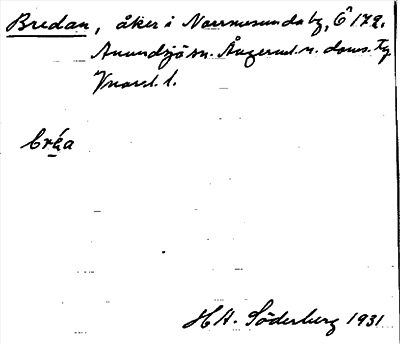 Bredan, åker i Norrmesunda by, Ö 172.
Anundsjö sn. Ångerml. n. doms. Tg
Vnorrl. l.
bréa
H A. Söderberg 1931